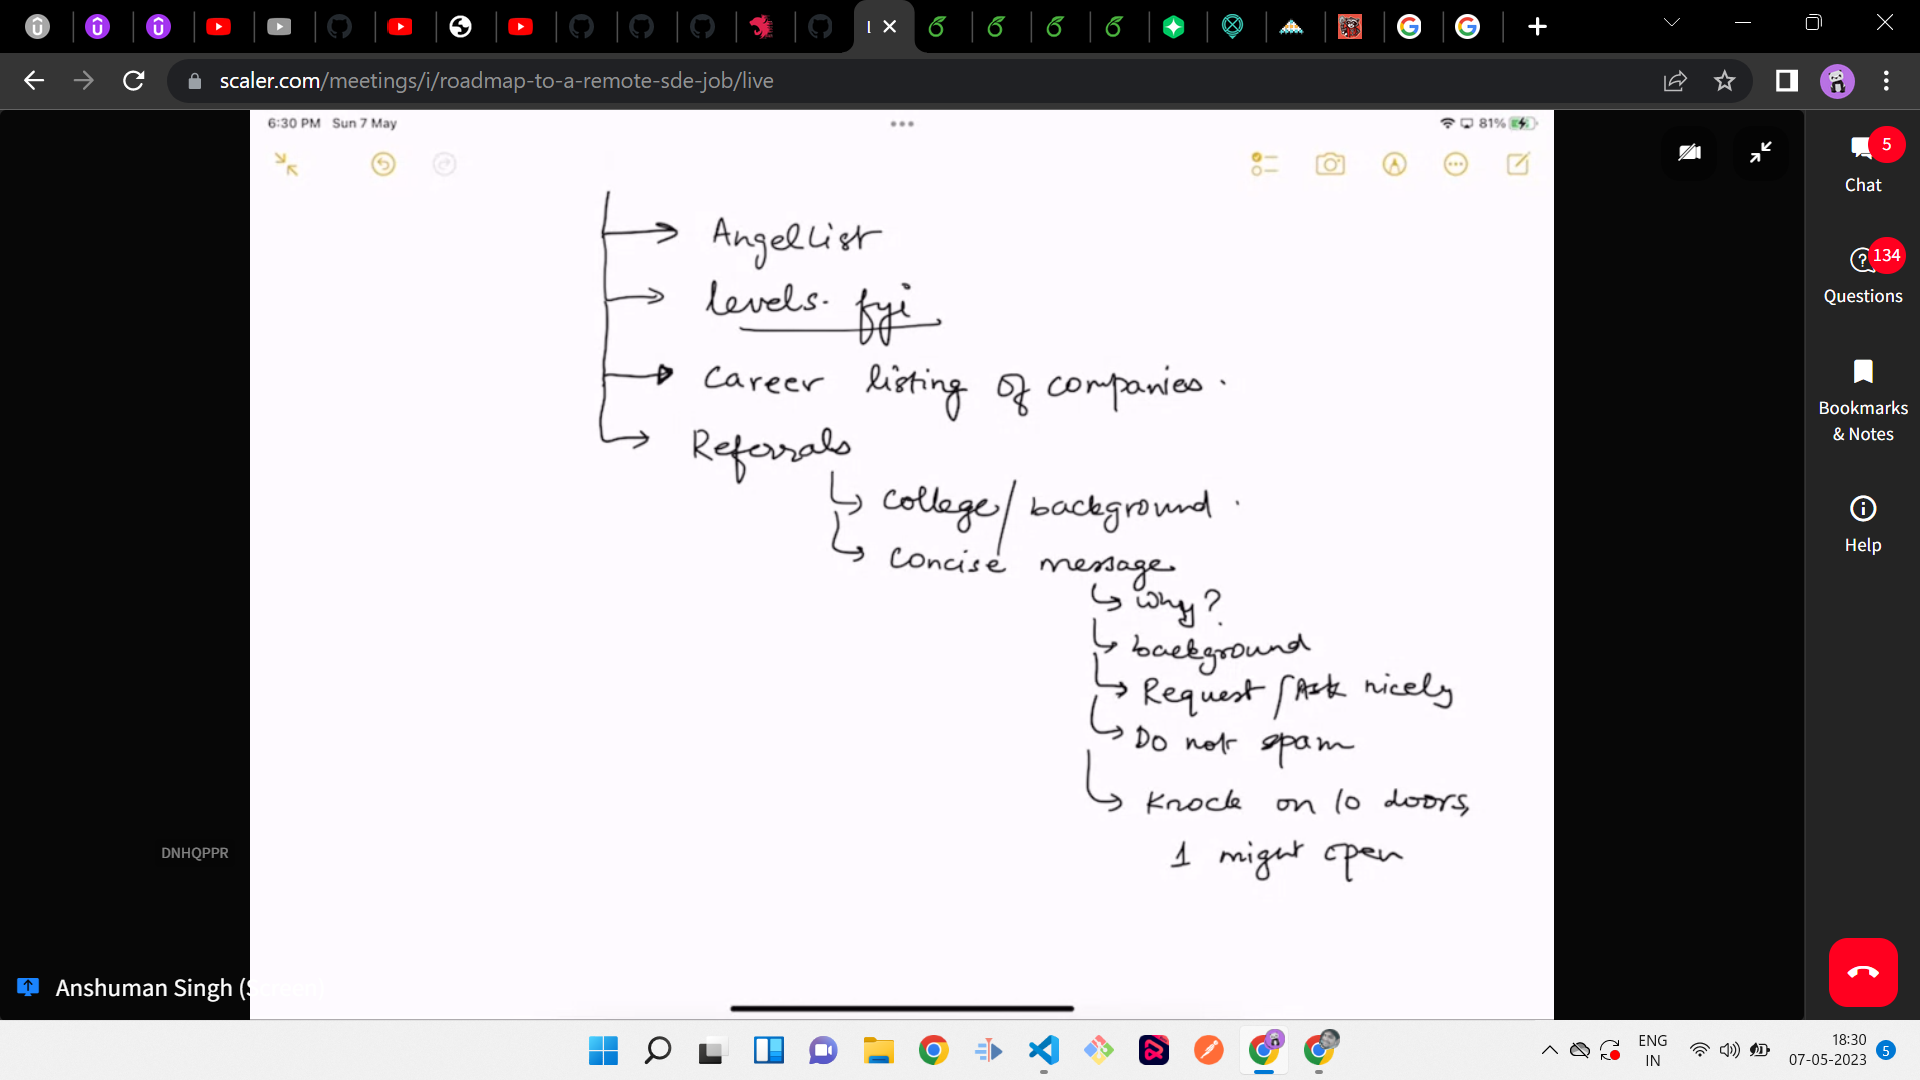 scaler.com/meetings/i/roadmap-to-a-remote-sde-job/live
6:30 PM Sun 7 May
81%
AngelList
levels.fyi
Career listing of companies.
Referrals
college/background.
concise message
why?
background
Request/Ask nicely
Do not spam
Knock on 10 doors,
1 might open
5
Chat
134
Questions
Bookmarks
& Notes
Help
DNHQPPR
Anshuman Singh (Screen)
ENG
IN
18:30
07-05-2023
5